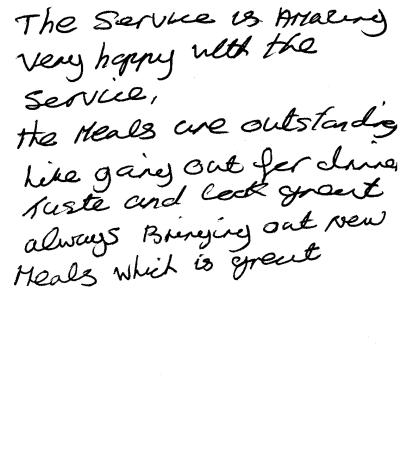 The Service is Amazing
very happy with the
Service,
the Meals are outstanding
Like going out for dinner
Taste and look great
always Bringing out New
Meals which is great